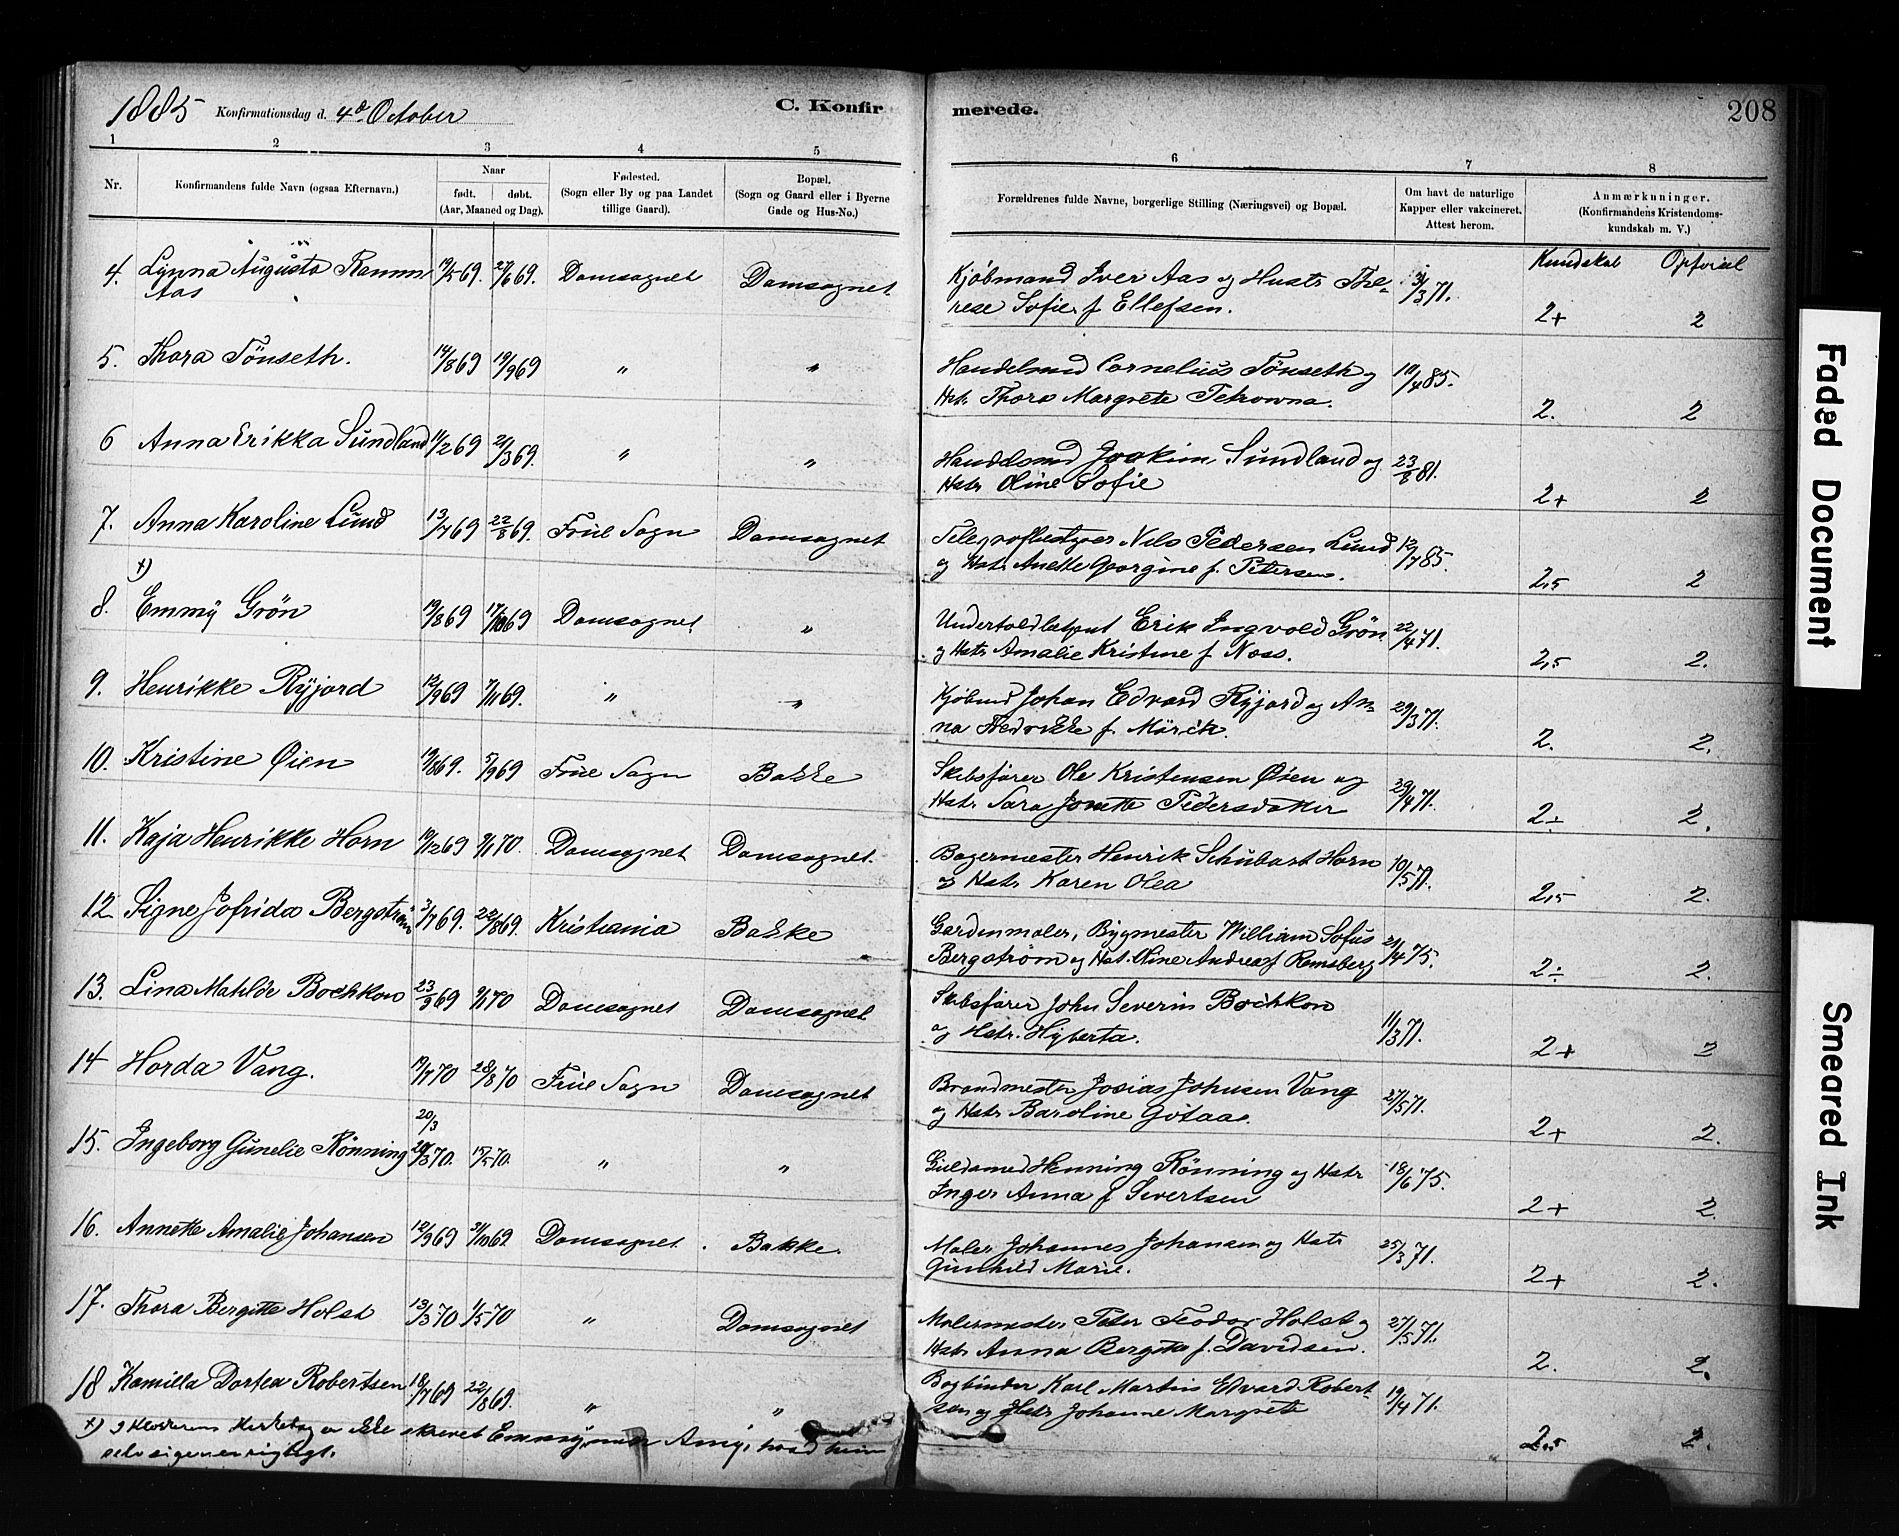 1885 Konfirmationsdag d. 4de October C. Konfirmerede. 208
1 2 3 4 5 6 7 8
Nr. Konfirmandens fulde Navn (ogsaa Efternavn.) Naar født. døbt. (Aar, Maaned og Dag). Fødested. (Sogn eller By og paa Landet tillige Gaard). Bopæl. (Sogn og Gaard eller i Byerne Gade og Hus-No.) Forældrenes fulde Navne, borgerlige Stilling (Næringsvei) og Bopæl. Om havt de naturlige Kapper eller vakcineret. Attest herom. Anmærkninger. (Konfirmandens Kristendoms-kundskab m. V.)
Kundskab Opførsel
4. Lynna Augusta Ramm 19/5 69. 27/6 69. Domsognet Domsognet Kjøbmand Iver Aas og Hustr The-
Aas rese Sofie f Ellefsen. 3/3 71. 2+ 2
5. Thora Tönseth. 14/8 69 19/9 69 " " Handelsmd Cornelius Tönseth og 10/4 85.
Hstr Thora Margrete Petrowna. 2. 2
6 Anna Erikka Sundland 11/2 69 21/3 69. " " Handelsmd Joakim Sundland og 23/8 81.
Hstr Oline Sofie 2+ 2
7. Anna Karoline Lund 13/7 69 22/8 69. Frue Sogn Domsognet Telegrafbestyrer Nils Pedersen Lund 12/7 85.
og Hstr Anette Georgine f. Petersen. 2,5 2
8. x) Emmy Grön 19/8 69 17/10 69 Domsognet " Undertoldbetjent Erik Ingvold Grön 22/4 71.
og Hstr Amalie Kristine f Noss. 2,5 2.
9. Henrikke Ryjord 12/9 69 7/11 69. " " Kjøbmd Johan Edvard Ryjord og An-
na Hedvikke f. Mörch. 29/3 71. 2. 2.
10. Kristine Øien 19/8 69. 5/9 69 Frue Sogn Bakke Skibsfører Ole Kristensen Øien og
Hstr Sara Jonette Pedersdatter 29/4 71. 2÷ 2.
11. Kaja Henrikke Horn 19/12 69 9/1 70. Domsognet Domsognet. Bagermester Henrik Schubart Horn 10/5 71.
og Hstr Karen Olea 2,5 2.
12. Signe Jofrida Bergström 3/7 69. 22/8 69. Kristiania Bakke Gardinmaler, Bygmester William Sofus 21/4 75.
Bergström og Hst. Oline Andrea f Remsberg 2÷ 2.
13. Lina Matilde Bochkon 23/9 69 9/1 70 Domsognet Domsognet Skibsfører John Severin Bochkon
og Hstr. Hyberta. 11/3 71. 2+ 2
14 Horda Vang. 19/7 70 28/8 70 Frue Sogn Domsognet Brandmester Josias Johnsen Vang 27/5 71.
og Hstr Baroline Götaas. 2+ 2.
20/3
15. Ingeborg Gunelie Rönning 20/3 70. 15/5 70. " " Guldsmed Henning Rönning og Hstr 18/6 75.
Inger Anna f Sivertsen 2+ 2.
16. Annette Amalie Johansen 12/9 69 31/10 69 Domsognet. Bakke. Maler Johannes Johansen og Hstr 25/3 71.
Gunhild Marie. 2+ 2.
17. Thora Bergitte Holst 13/3 70 1/5 70 " Domsognet Malermester Peter Teodor Holst og 27/5 71.
Hstr Anna Bergitte f. Davidsen. 2. 2.
18 Kamilla Dortea Robertsen 18/7 69 22/8 69. " " Bogbinder Karl Martin Edvard Robert-
sen og Hstr Johanne Margrete 19/4 71. 2,5 2.
x) I Klokkerens Kirkebog er ikke skrevet Emmy, men Amy, hvad hun
selv siger er rigtigt.
Faded Document
Smeared Ink